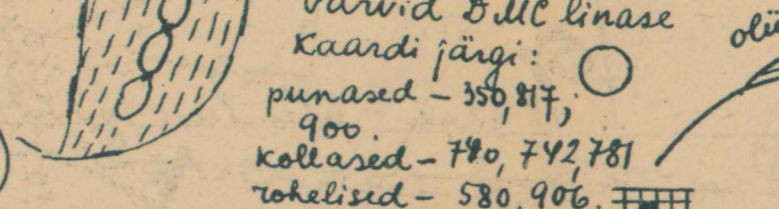 värvid DMC linase
kaardi järgi:
punased – 350, 817,
900.
kollased – 740, 742, 781
rohelised – 580, 906.